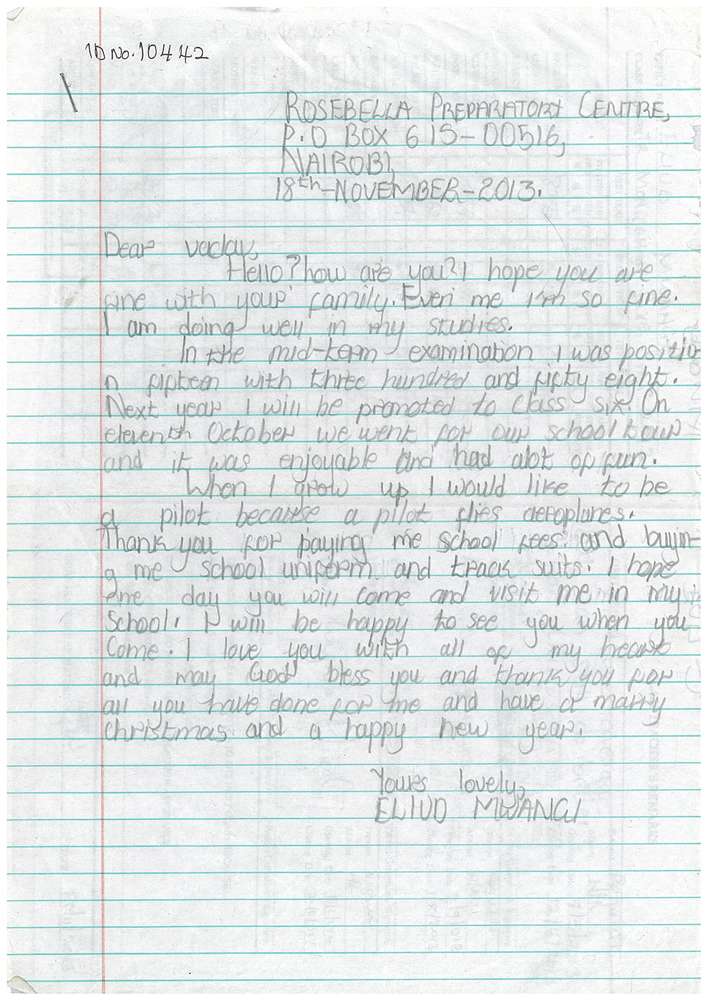 ID No. 10442
ROSEBELLA PREPARATORY CENTRE,
P.O BOX 615-00516,
NAIROBI,
18th-NOVEMBER-2013.
Dear vaclav,
Hello? how are you? I hope you are
fine with your family. Even me I'm so fine.
I am doing well in my studies.
In the mid-term examination I was positio
n fifteen with three hundred and fifty eight.
Next year I will be promoted to class six. On
eleventh October we went for our school tour
and it was enjoyable and had alot of fun.
When I grow up I would like to be
a pilot because a pilot flies aeroplanes.
Thank you for paying me school fees and buyin-
g me school uniform and track suits. I hope
one day you will come and visit me in my
school. I will be happy to see you when you
come. I love you with all of my heart
and may God bless you and thank you for
all you have done for me and have a marry
christmas and a happy new year.
Yours lovely,
ELIUD MWANGI